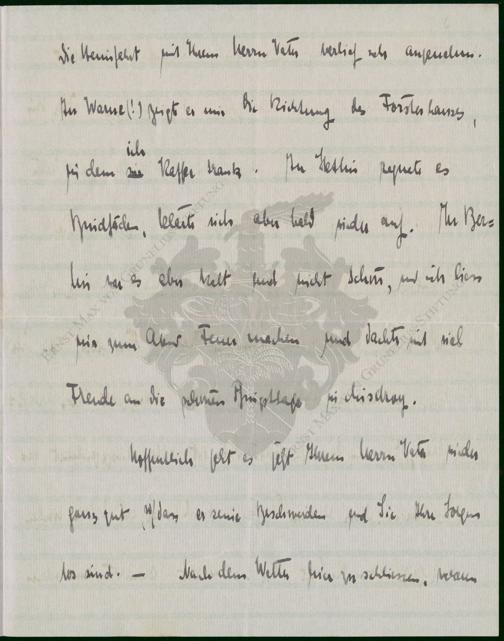 Die Heimfahrt mit Ihrem Herrn Vater verlief sehr angenehm.
In Warnow(!) zeigte er mir die Richtung des Forsthauses,
in dem ich Kaffee trank. In Stettin regnete es
Bindfäden, klärte sich aber bald wieder auf. In Ber=
lin war es aber kalt und nicht schön, und ich liess
mir zum Abend Feuer machen und dachte mit viel
Freude an die schönen Pfingsttage in Misdroy.
Hoffentlich geht es jetzt Ihrem Herrn Vater wieder
ganz gut, so/dass er seine Beschwerden und Sie Ihre Sorgen
los sind. — Nach dem Wetter hier zu schliessen, waren